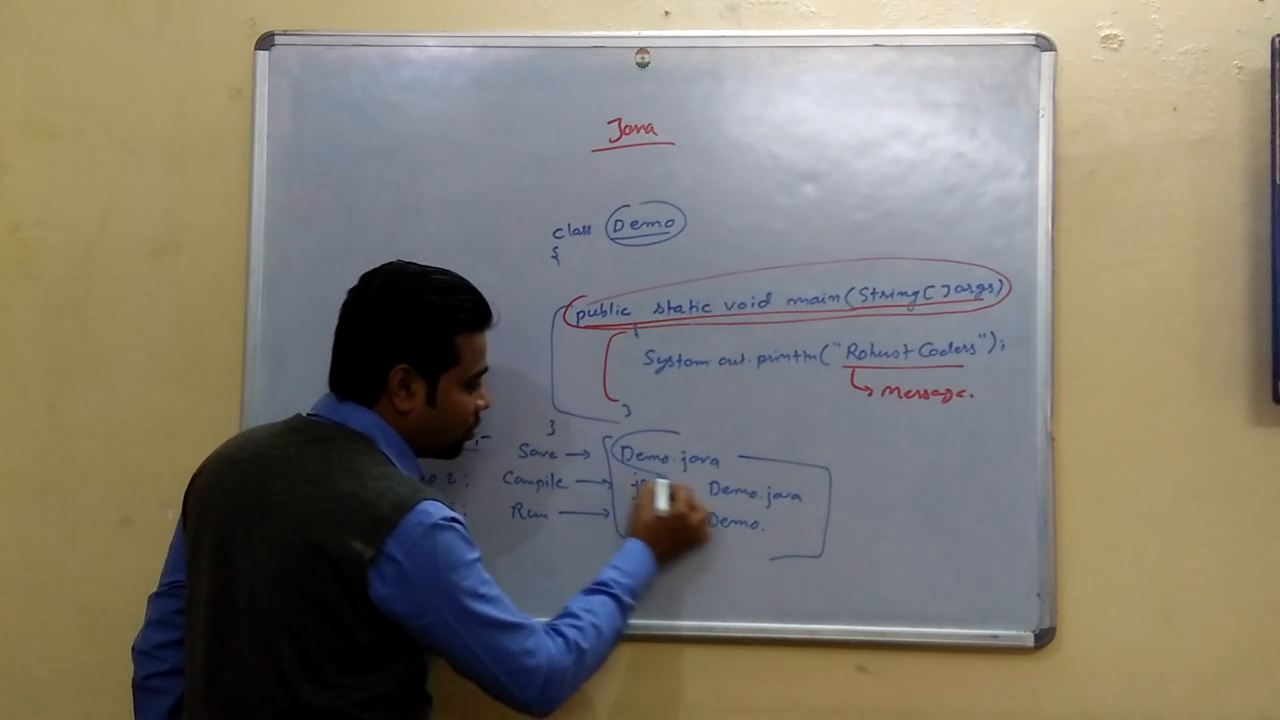 Java
class Demo
{
public static void main(String[]args)
{
System.out.println("Robust Coders");
Message.
}
}
Save → Demo.java
2: Compile → Demo.java
: Run → Demo.